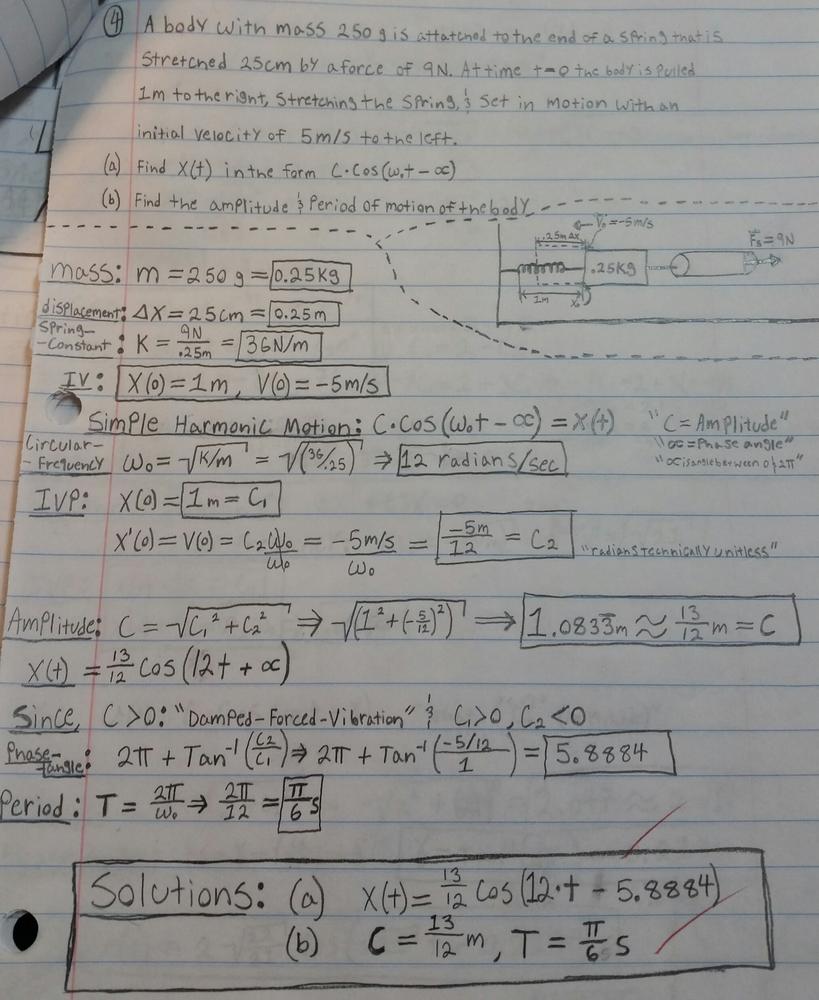 ④ A body with mass 250 g is attatched to the end of a spring that is
Stretched 25cm by a force of 9N. At time t=0 the body is pulled
1m to the right, Stretching the Spring, & Set in motion with an
initial velocity of 5m/s to the left.
(a) Find X(t) in the form C·Cos(ω₀t-∝)
(b) Find the amplitude & Period of motion of the body
V₀=-5m/s
.25m ΔX
F⃗s=9N
.25Kg
1m
mass: m=250g=0.25Kg
displacement: ΔX=25cm=0.25m
Spring-
-Constant: K=9N/.25m=36N/m
IV: X(0)=1m, V(0)=-5m/s
Simple Harmonic Motion: C·Cos(ω₀t-∝)=X(t) "C=Amplitude"
"∝=Phase angle"
"∝ is angle between 0 & 2π"
Circular-
-Frequency ω₀=√K/m=√(36/.25) ⇒ 12 radians/sec
IVP: X(0)=1m=C₁
X'(0)=V(0)=C₂ω₀/ω₀=-5m/s/ω₀=-5m/12=C₂ "radians technically unitless"
Amplitude: C=√C₁²+C₂² ⇒ √(1²+(-5/12)²) ⇒ 1.0833̅m≈13/12m=C
X(t)=13/12 Cos(12t+∝)
Since, C>0: "Damped-Forced-Vibration" & C₁>0, C₂<0
Phase-
-angle: 2π+Tan⁻¹(C₂/C₁) ⇒ 2π+Tan⁻¹(-5/12/1)=5.8884
Period: T=2π/ω₀ ⇒ 2π/12=π/6 s
Solutions: (a) X(t)=13/12 Cos(12·t-5.8884)
(b) C=13/12m, T=π/6 s